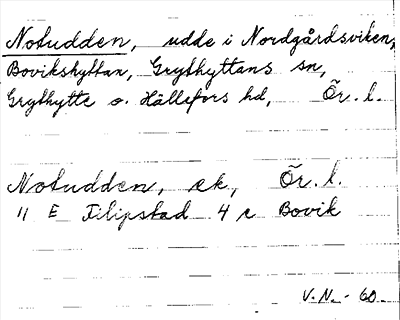 Notudden, udde i Nordgårdsviken,
Bovikshyttan, Grythyttans sn,
Grythytte o. Hällefors hd, Ör. l.
Notudden, ek, Ör. l.
11 E Filipstad 4 c Bovik
V.N. - 60.